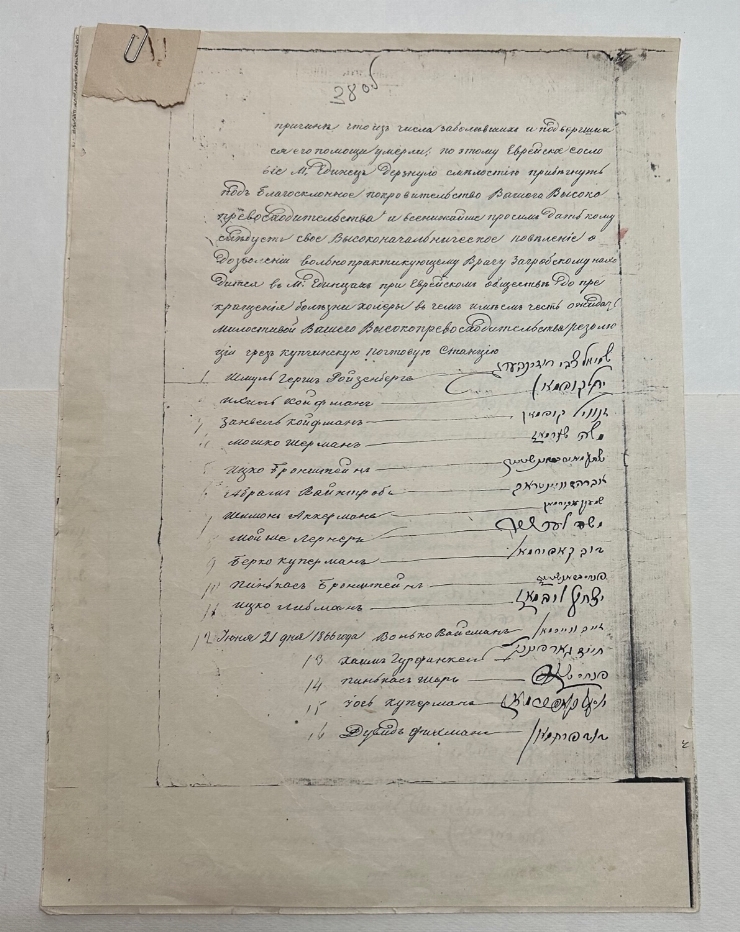 38 об
причинѣ что изъ числа заболѣвшихъ и подвергших
ся его помощи умерли, по этому Еврейска сосло
віе М. Единецъ дерзнуло смѣлостію прибѣгнуть
подъ благосклонное покровительство Вашего Высоко
превосходительства и всенижайше просимъ дать кому
слѣдуетъ свое Высоконачальническое повелѣніе о
дозволеніи вольнопрактикующему Врачу Загробскому нахо
дится въ М. Единцахъ при Еврейскомъ обществѣ до пре
кращенія болѣзни холеры въ чемъ имѣемъ честь ожидать
милостивой Вашего Высокопревосходительства резолю
ціи чрезъ купчинскую почтовую Станцію
1 Шмуль Гершъ Ройзенбергъ שמואל צבי רויזנבערג
Койфманъ
Занвель Койфманъ זנוויל קופמאן
4 Мошко Шерманъ משה שערמאן
5 Ицко Бронштейнъ
6 Абрамъ Вайнтробъ אברהם וויינטראב
7 Шимонъ Аккерманъ שמעון אקערמאן
8 Мойше Лернеръ משה לערנער
9 Берко Куперманъ בער קאפערמאן
10 Пинькасъ Бронштейнъ
11 Ицко Либманъ יצחק ליבמאן
12 Іюня 21 дня 1866 года Волько Вайсманъ וואלף ווייסמאן
13 Хаимъ Гурфинкель חיים גארפינקיל
14 Пинькасъ Шоръ פנחס שאר
15 Іось Куперманъ
16 Дувидъ Фихманъ דוד פיכמאן